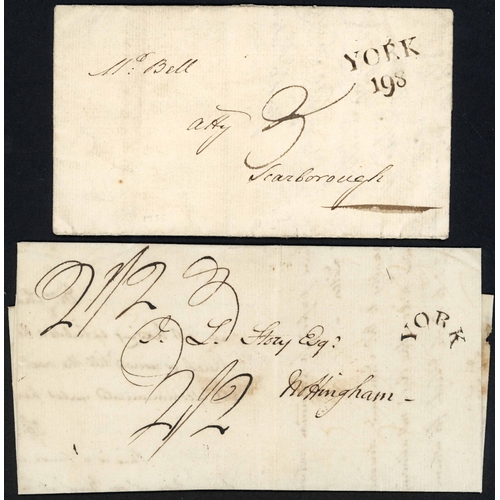 YORK
198
Mr. Bell
atty 3
Scarborough
2/2 3
YORK
J. L. Story Esq:
2/2
Nottingham -